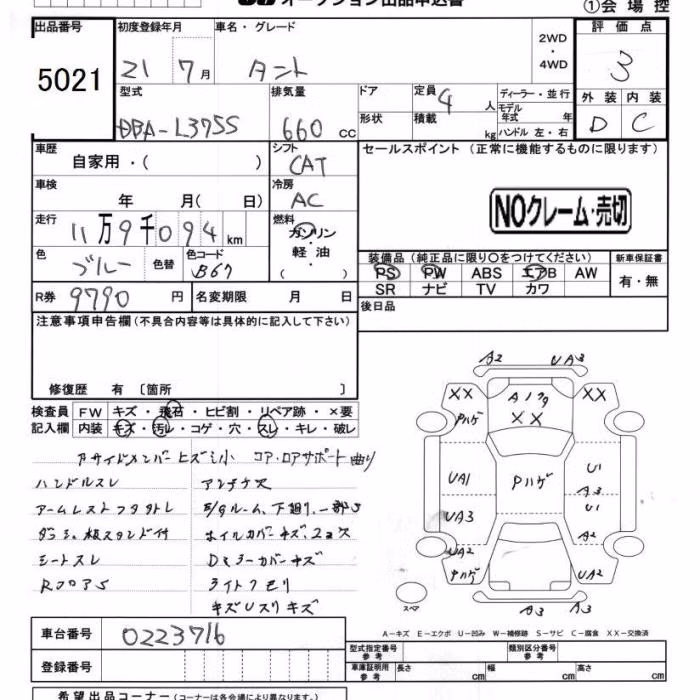 オークション出品申込書
①会 場 控
出品番号 5021
初度登録年月 21 7月
車名・グレード タント
2WD・4WD
評価点 3
型式 DBA-L375S
排気量 660 cc
ドア
定員 4 人
ディーラー・並行
形状
積載 kg
モデル年式 年
ハンドル 左・右
外装 D
内装 C
車歴 自家用・( )
シフト CAT
セールスポイント(正常に機能するものに限ります)
車検 年 月( 日)
冷房 AC
NOクレーム・売切
走行 11万9千094 km
燃料 ガソリン・軽油・( )
色 ブルー
色替
色コード B67
装備品(純正品に限り○をつけてください)
新車保証書
PS PW ABS エアB AW
SR ナビ TV カワ
有・無
R券 9790 円
名変期限 月 日
後日品
注意事項申告欄(不具合内容等は具体的に記入して下さい)
修復歴 有 〔箇所 〕
検査員記入欄
FW キズ・飛石・ヒビ割・リペア跡・×要
内装 キズ・汚レ・コゲ・穴・スレ・キレ・破レ
コア・ロアサポート曲り
ハンドルスレ
アンテナ欠
シートスレ
ライトクモリ
キズUスリキズ
A2 UA3
XX XX
A179
XX
Pハゲ
UA1 Pハゲ U1
A3
UA3 U1
A2
UA2
Pハゲ UA2
スペア
A3 A3
A-キズ E-エクボ U-凹み W-補修跡 S-サビ C-腐食 XX-交換済
車台番号 0223716
型式指定番号 参考
類別区分番号 参考
登録番号
車庫証明用 参考
長さ cm 幅 cm 高さ cm
希望出品コーナー(コーナーは各会場により異なります。)